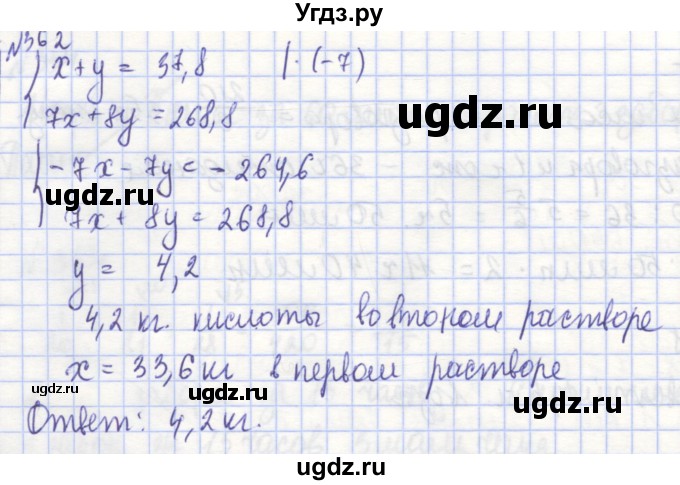 Угдз.ру
№362
x + y = 37,8 | · (-7)
7x + 8y = 268,8
ugdz.ru
- 7x - 7y = - 264,6
7x + 8y = 268,8
ugdz.ru
y = 4,2
4,2 кг. кислоты во втором растворе
ugdz.ru
x = 33,6 кг в первом растворе
ugdz.ru
Ответ: 4,2 кг.
ugdz.ru